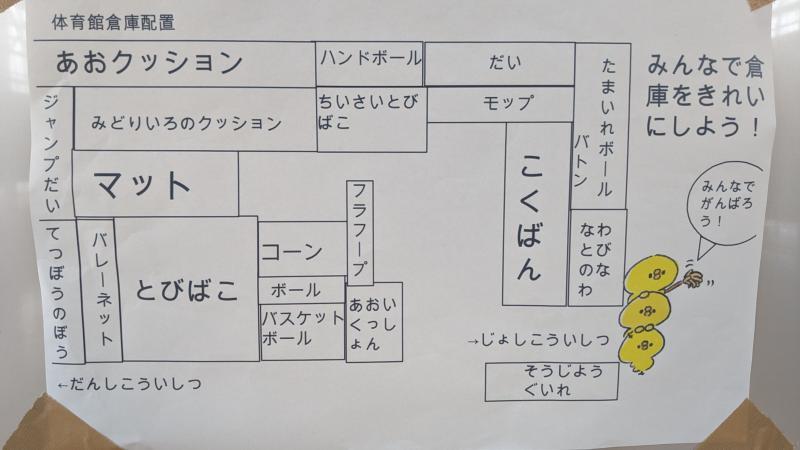 体育館倉庫配置
あおクッション
ハンドボール
だい
たまいれボール
バトン
みんなで倉
庫をきれい
にしよう！
ジャンプだい
みどりいろのクッション
ちいさいとび
ばこ
モップ
マット
こくばん
みんなで
がんばろ
う！
てつぼうのぼう
バレーネット
とびばこ
コーン
フラフープ
ボール
バスケット
ボール
あおい
くっし
ょん
わびな
なとの
わ
→じょしこういしつ
←だんしこういしつ
そうじよう
ぐいれ